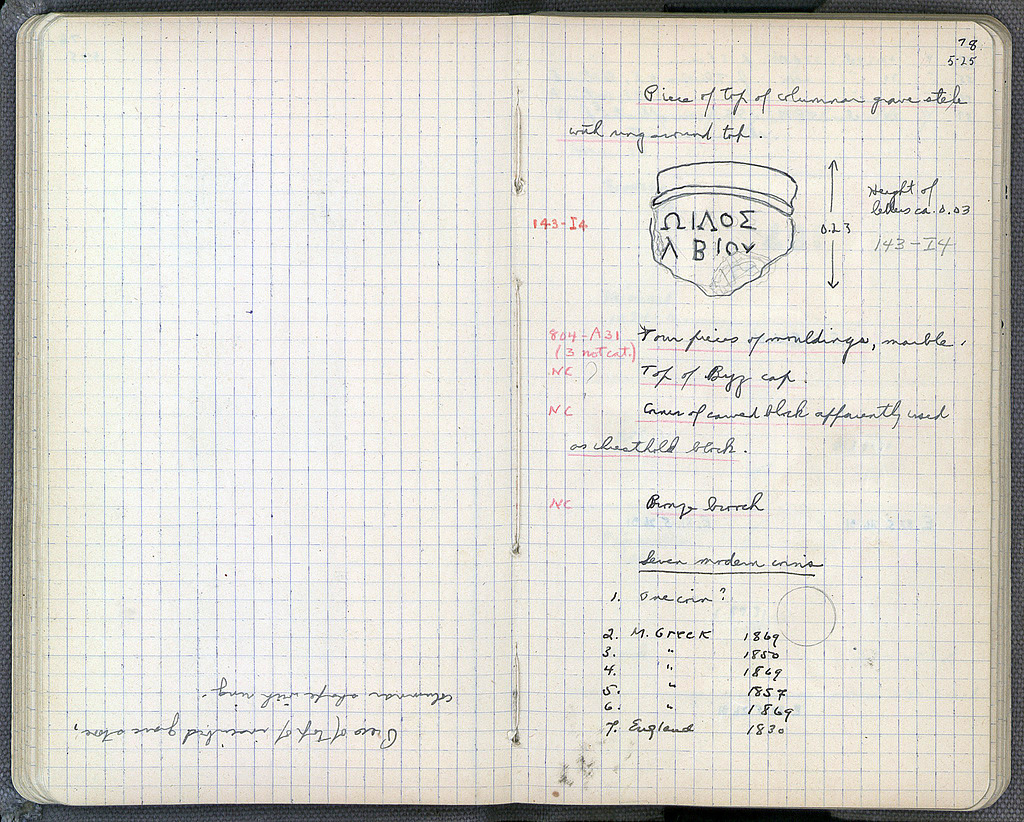 Piece of top of inscribed grave stone,
columnar shape with ring.
78
5-25
Piece of top of columnar grave stele
with ring around top.
Height of
letters ca. 0.03
143-I4
ΩΙΛΟΣ
Λ ΒΙΟΥ
0.23
143-I4
804-A31
(3 not cat.)
Four pieces of mouldings, marble.
NC ?
Top of Byz cap.
NC
Corner of carved block apparently used
as block.
NC
Bronze brooch
Seven modern coins
1. One coin?
2. M. Greek 1869
3. " 1850
4. " 1869
5. " 1857
6. " 1869
7. England 1830